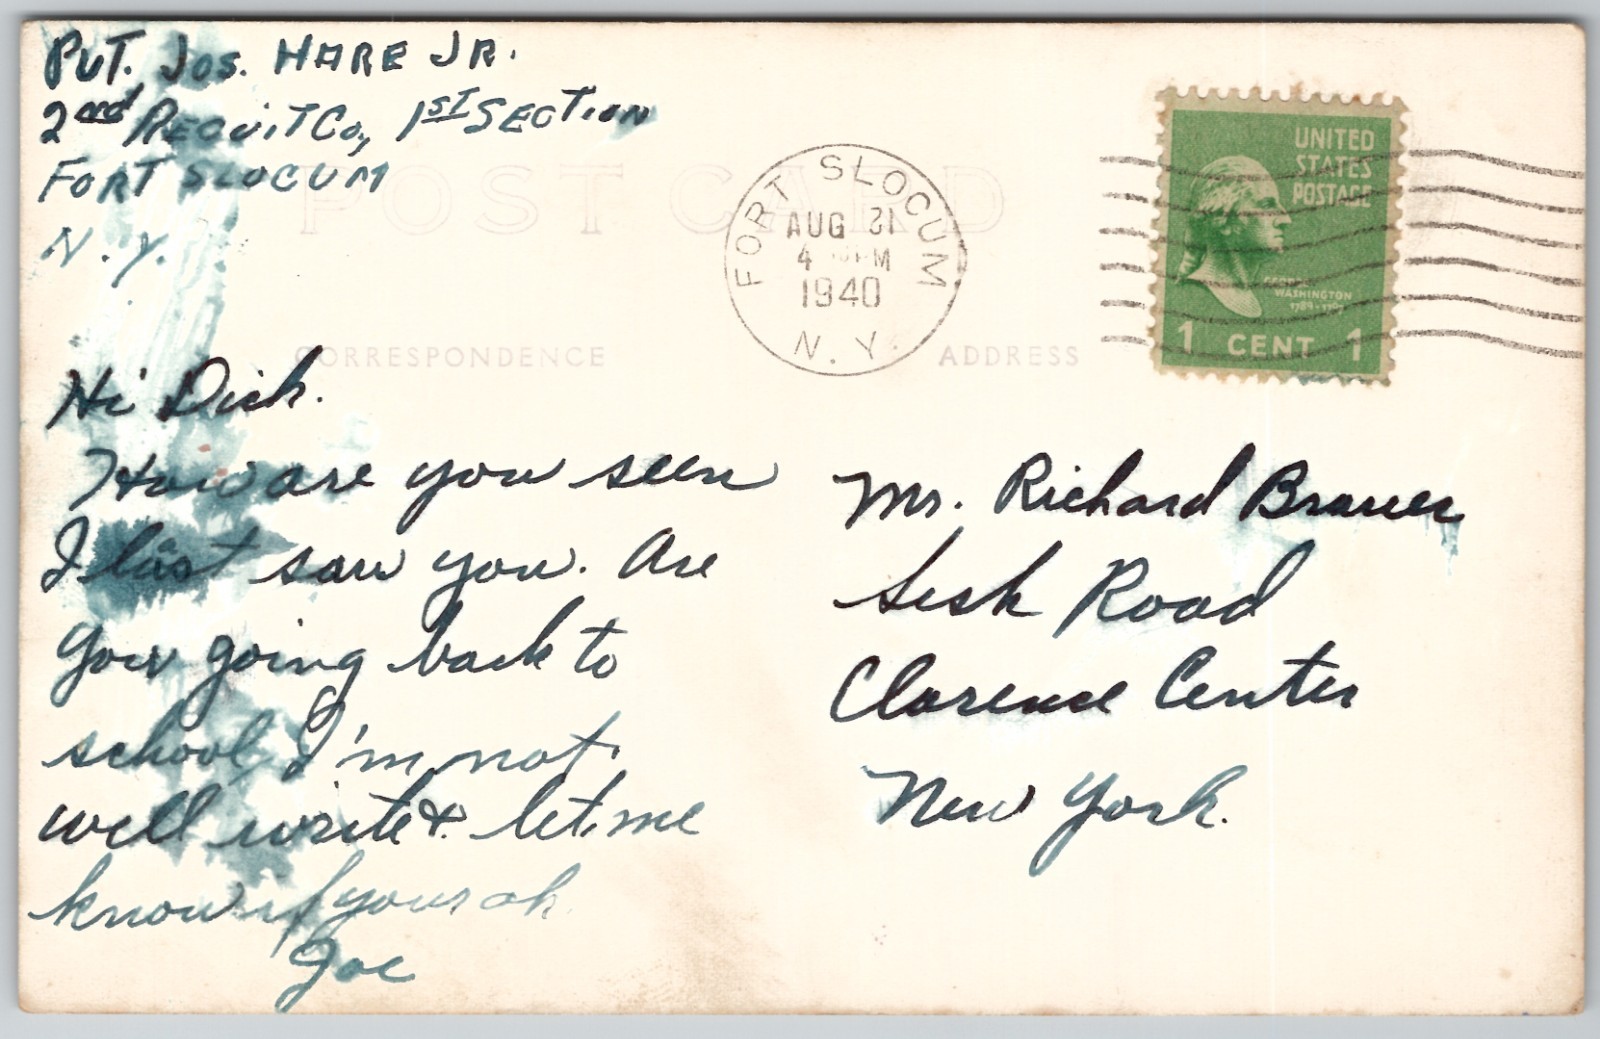 PVT. JOS. HARE JR.
2nd RECUIT Co, 1ST SECTION
FORT SLOCUM
N.Y.
POST CARD
FORT SLOCUM
AUG 31
4 PM
1940
N. Y.
UNITED
STATES
POSTAGE
GEORGE
WASHINGTON
1789-1797
1 CENT 1
CORRESPONDENCE
ADDRESS
Hi Dick.
How are you seen
I last saw you. Are
your going back to
school, I'm not.
well write & let me
know if your ok.
Joe
Mr. Richard
Sesh Road
Clarence Center
New York.